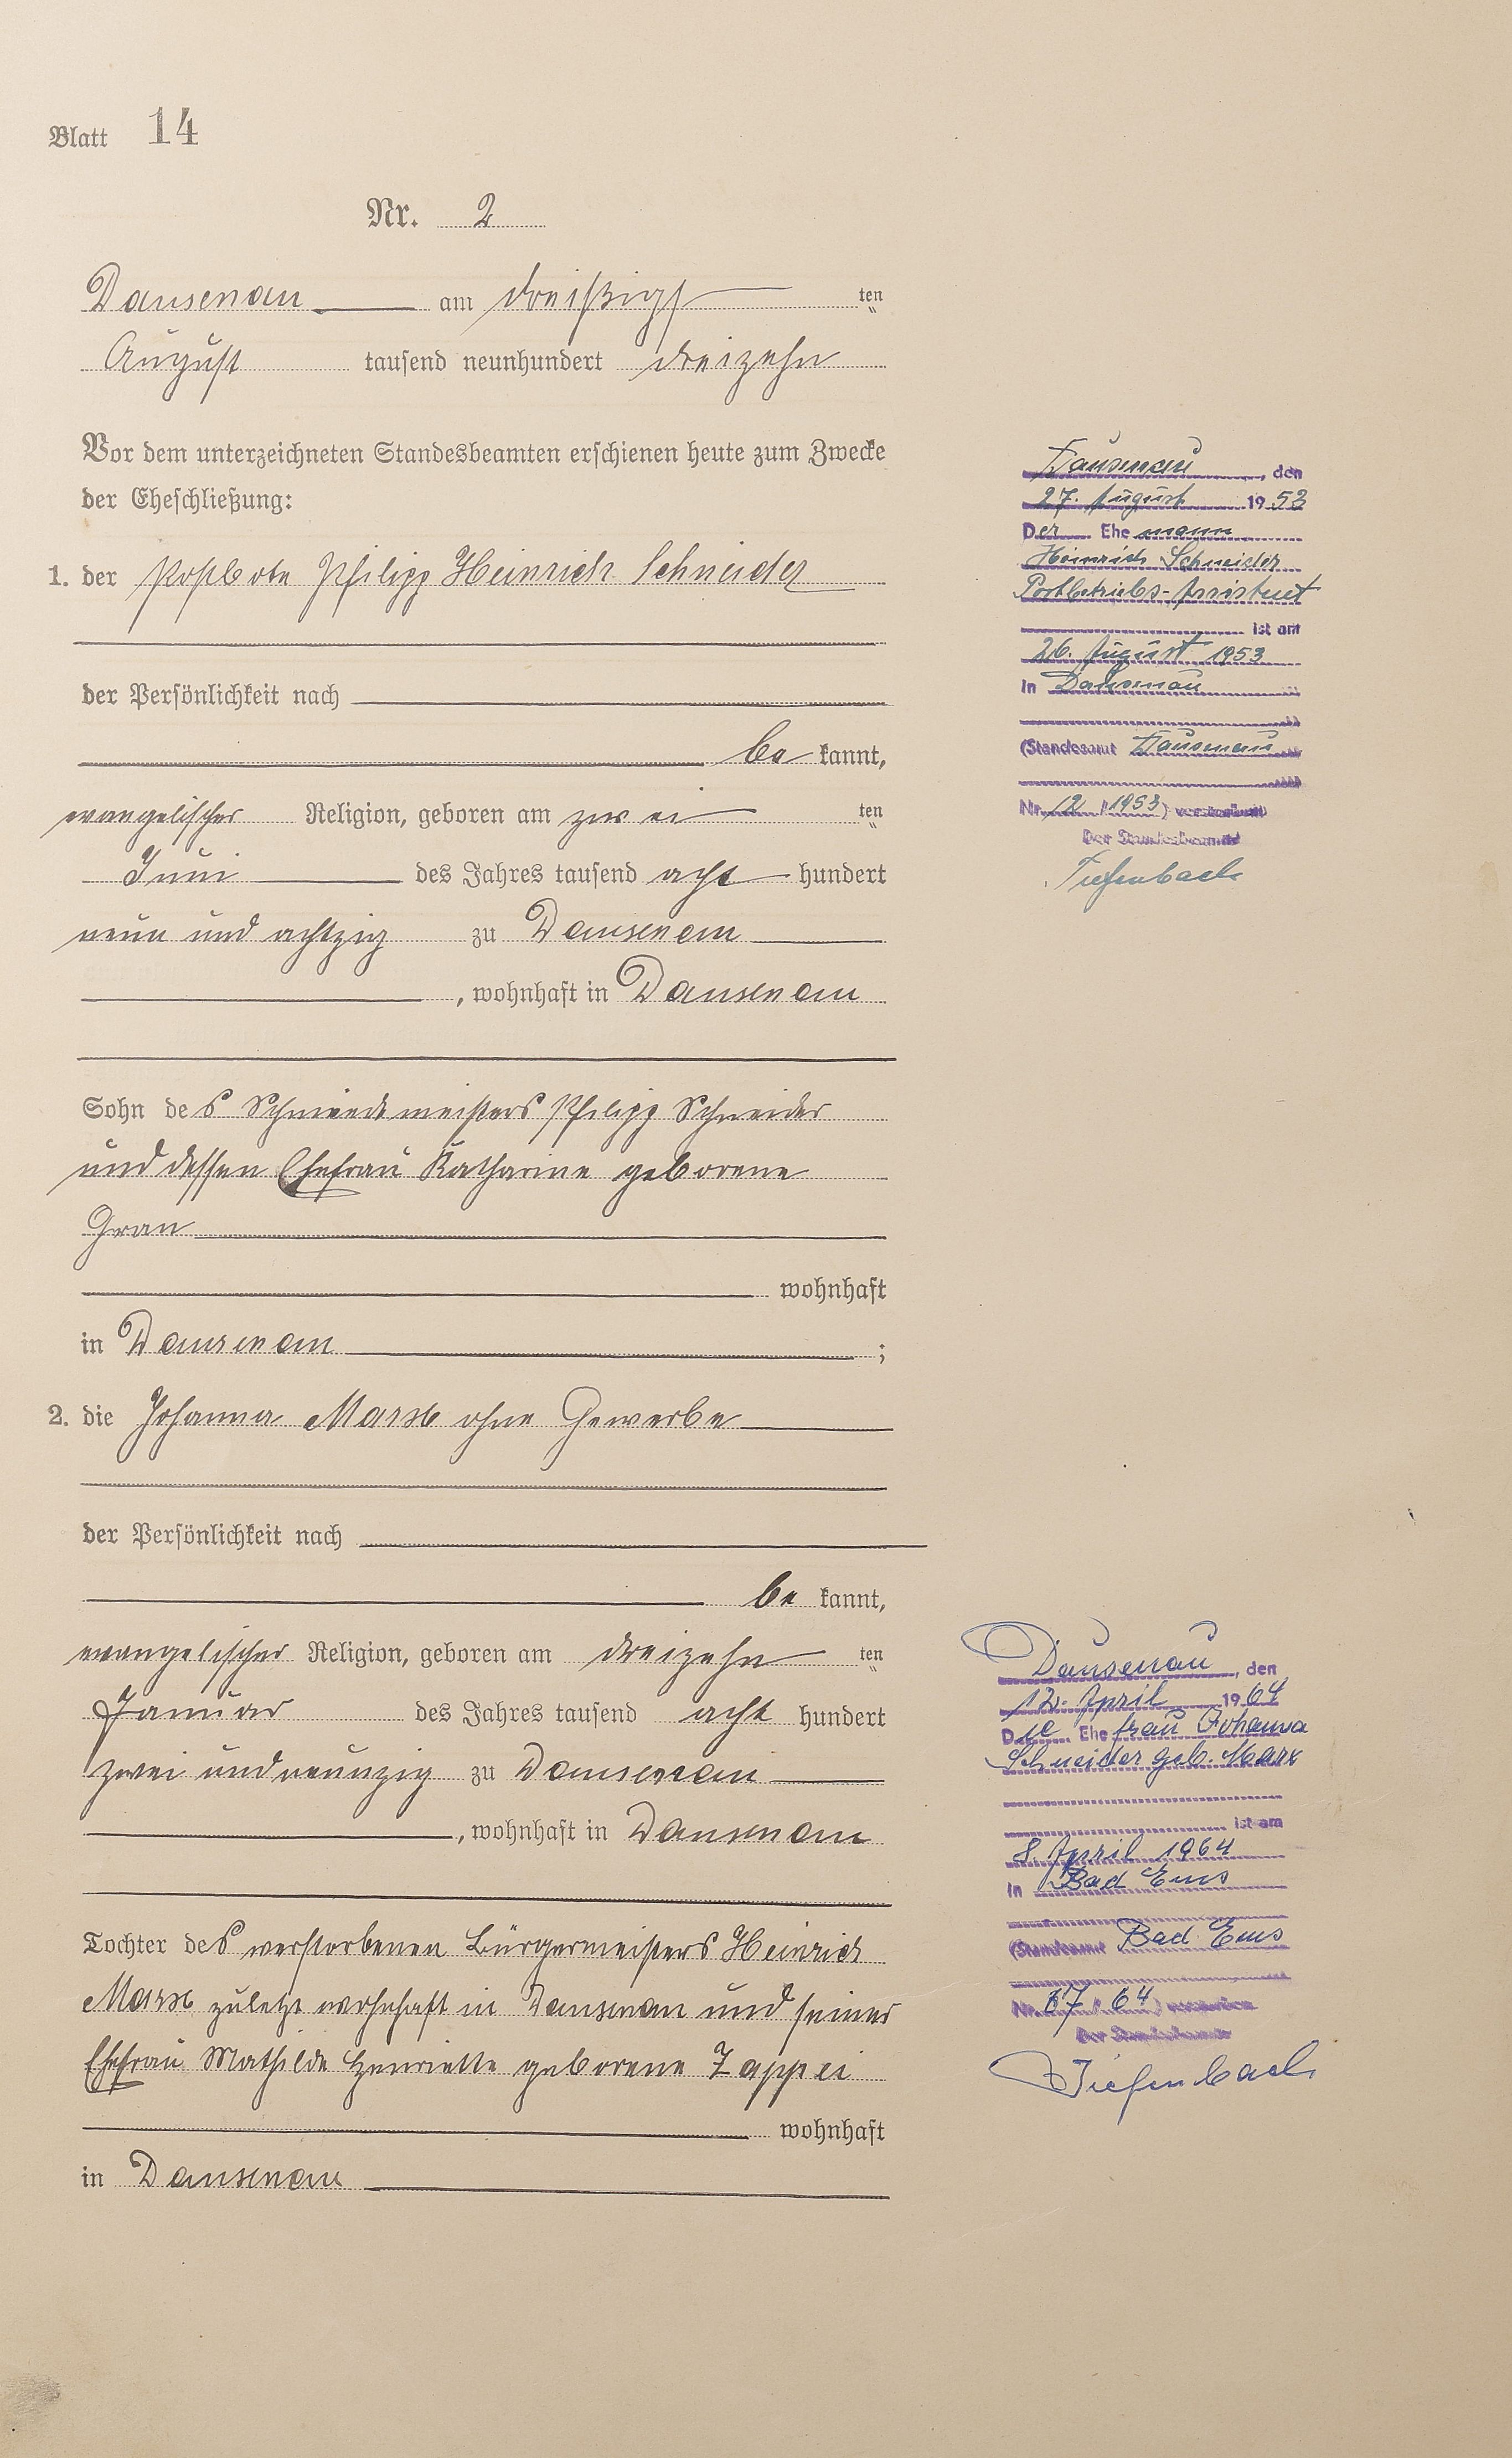 Blatt 14
Nr. 2
Dausenau am dreißigsten
August tausend neunhundert dreizehn
Vor dem unterzeichneten Standesbeamten erschienen heute zum Zwecke
der Eheschließung:
1. der Postbote Philipp Heinrich Schneider
der Persönlichkeit nach
be kannt,
evangelischer Religion, geboren am zwei ten
Juni des Jahres tausend acht hundert
neun und achtzig zu Dausenau
, wohnhaft in Dausenau
Sohn des Schmiedemeisters Philipp Schneider
und dessen Ehefrau Katharine geborene
wohnhaft
in Dausenau ;
2. die Johanna Marx ohne Gewerbe
der Persönlichkeit nach
be kannt,
evangelischer Religion, geboren am dreizehn ten
Januar des Jahres tausend acht hundert
zwei und neunzig zu Dausenau
, wohnhaft in Dausenau
Tochter des verstorbenen Bürgermeisters Heinrich
Marx zuletzt wohnhaft in Dausenau und seiner
Ehefrau Mathilde Henriette geborene Zappei
wohnhaft
in Dausenau
Dausenau, den
27. August 1953
Der Ehemann
Heinrich Schneider
Postbetriebs-Assistent
ist am
26. August 1953
in Dausenau
(Standesamt Dausenau
Nr. 12 / 1953) verstorben
Der Standesbeamte
Tiefenbach
Dausenau, den
12. April 1964
Die Ehefrau Johanna
Schneider geb. Marx
ist am
8. April 1964
in Bad Ems
(Standesamt Bad Ems
Nr. 67 / 64) verstorben
Der Standesbeamte
Tiefenbach